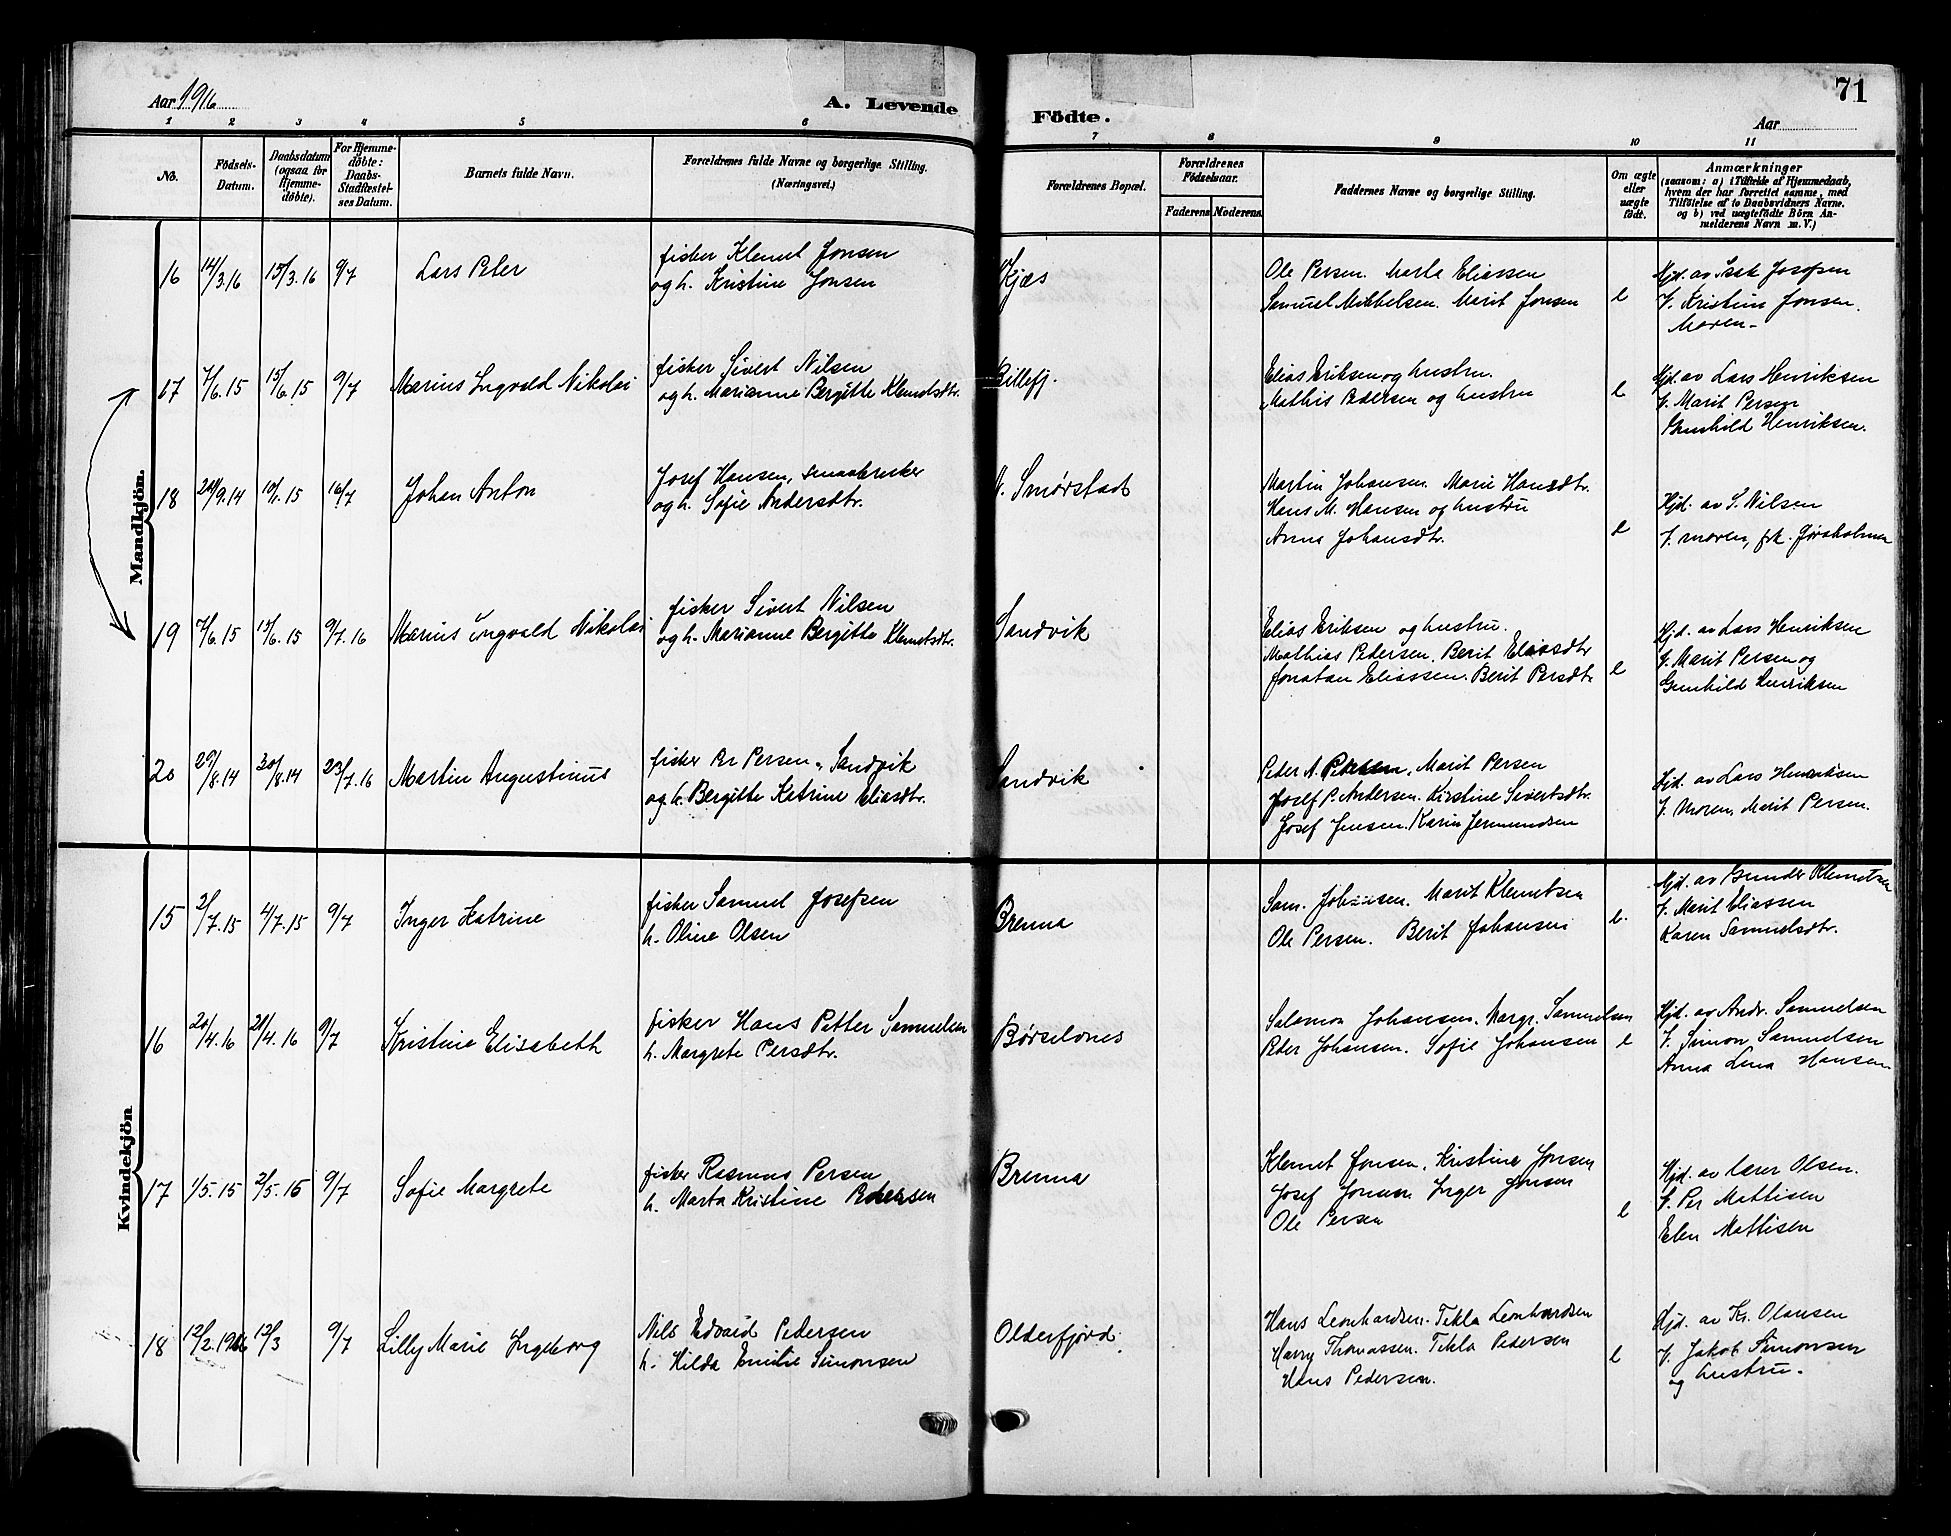 Aar 1916
A. Levende
Fødte.
71
Aar
1 2 3 4 5 6 7 8 9 10 11
No.
Fødsels-
Datum.
Daabsdatum
(ogsaa for
Hjemme-
døbte).
For Hjemme-
døbte:
Daabs-
Stadfæstel-
ses Datum.
Barnets fulde Navn.
Forældrenes fulde Navne og borgerlige Stilling.
(Næringsvei.)
Forældrenes Bopæl.
Forældrenes
Fødselsaar.
Faderens Moderens
Faddernes Navne og borgerlige Stilling.
Om ægte
eller
uægte
født.
Anmærkninger
(saasom: a) i Tilfælde af Hjemmedaab,
hvem der har forrettet samme, med
Tilføielse af to Daabsvidners Navne.
og b) ved uægtefødte Børn An-
melderens Navn m. V.)
Mandkjön.
16 14/3.16 15/3.16 9/7 Lars Peter
fisker Klemet Jonsen
og h. Kristine Jonsen
Kjæs
Ole Persen. Marta Eliassen
Samuel Mikkelsen. Marit Jonsen
e
Hjd. av Isak Josefsen
V. Kristine Jonsen.
Moren
17 7/6.15 15/6.15 9/7 Marius Ingvald Nikolai
fisker Sivert Nilsen
og h. Marianne Bergitte Klemetsdtr.
Billefj.
Elias Eriksen og hustru.
Mathis Pedersen og hustru
e
Hjd. av Lars Henriksen
V. Marit Persen
Gunhild Henriksen.
18 9.14 10/1.15 16/7 Johan Anton
Josef Hansen, smaabruker
og h. Sofie Andersdtr.
N. Smørstad
Martin Johansen. Marie Hansdtr.
Hans M. Hansen og hustru
Anna Johansdtr.
e
Hjd. av S. Nilsen
V. moren, frk.
19 7/6.15 15/6.15 9/7.16 Marius Ingvald Nikolai
fisker Sivert Nilsen
og h. Marianne Bergitte Klemetsdtr.
Sandvik
Elias Eriksen og hustru.
Mathias Pedersen, Berit Eliasdtr
Jonatan Eliassen. Berit Persdtr.
e
Hjd. av Lars Henriksen
V. Marit Persen og
Gunhild Henriksen
20 29/8.14 30/8.14 23/7.16 Martin Augustinus
fisker Per Persen, Sandvik
og h. Bergitte Katrine Eliasdtr.
Sandvik
Peter A. Marit Persen
Josef P. Andersen. Kirstine Sivertsdtr.
Josef Jensen. Karin Jermundsen
Hjd. av Lars Henriksen
V. Moren, Marit Persen.
Kvindekjön
15 2/7.15 4/7.15 9/7 Inger Katrine
fisker Samuel Josefsen
h. Oline Olsen
Brenna
Sam. Johansen. Marit Klemetsen
Ole Persen. Berit Johansen
e.
Hjd. av Gunder Klemetsen
V. Marit Eliassen
Karen Samuelsdtr.
16 20/4.16 21/4.16 9/7 Kristine Elisabeth
fisker Hans Petter Samuelsen
h. Margrete Persdtr.
Børselvnes
Salomon Johansen. Margr. Samuelsen
Peder Johansen. Sofie Johansen
e
Hjd. av Andr. Samuelsen
V. Simon Samuelsen
Anna Lena Hansen.
17 1/5.15 2/5.15 9/7 Sofie Margrete
fisker Rasmus Persen
h. Marta Kristine Pedersen
Brenna
Klemet Jonsen, Kristine Jonsen
Josef Jonsen. Inger Jonsen
Ole Persen
e
Hjd. av lærer Olsen.
V. Per Mattisen
Elen Mattisen
18 12/2.1916 12/3 9/7 Lilly Marie Ingeborg
Nils Edvard Pedersen
h. Hilda Emilie Simonsen
Olderfjord.
Hans Leonhardsen. Tekla Leonhardsen
Harry Thomassen. Tekla Pedersen
Hans Pedersen.
e
Hjd. av Kr. Olausen
V. Jakob Simonsen
og hustru.